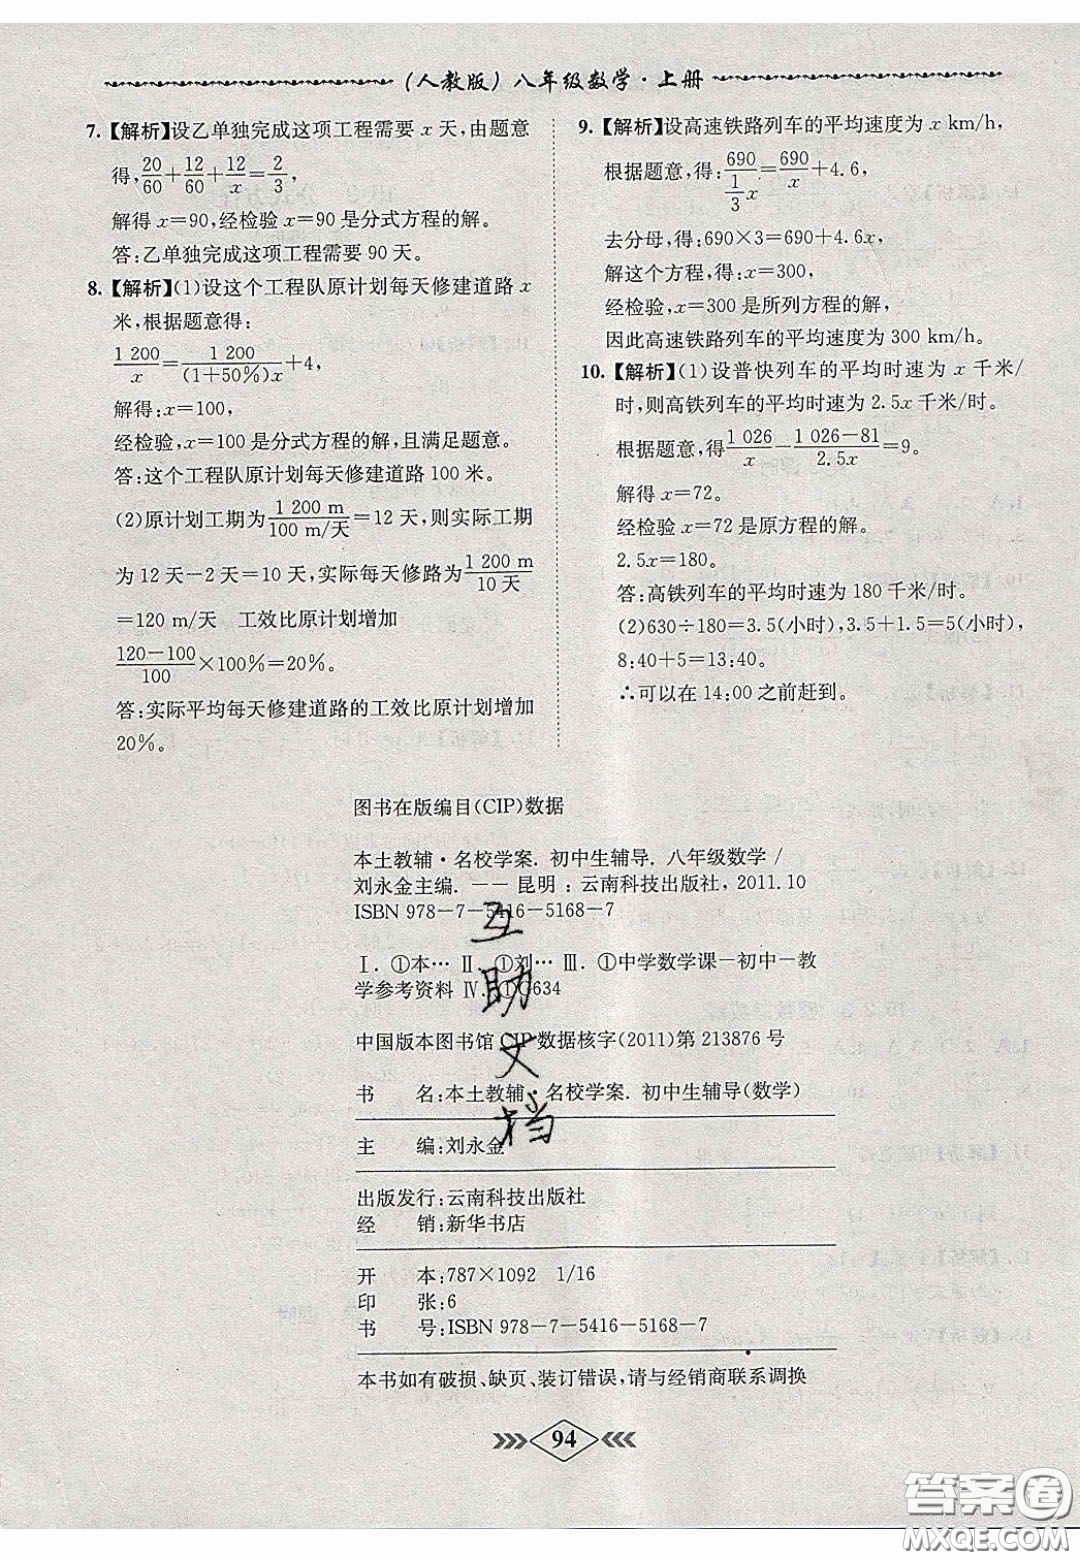 (人教版)八年级数学·上册
7.【解析】设乙单独完成这项工程需要 x 天,由题意
得,20/60+12/60+12/x=2/3,
解得 x=90,经检验 x=90 是分式方程的解。
答:乙单独完成这项工程需要 90 天。
8.【解析】(1)设这个工程队原计划每天修建道路 x
米,根据题意得:
1 200/x=1 200/(1+50%)x+4,
解得:x=100,
经检验,x=100 是分式方程的解,且满足题意。
答:这个工程队原计划每天修建道路 100 米。
(2)原计划工期为1 200 m/100 m/天=12 天,则实际工期
为 12 天-2 天=10 天,实际每天修路为1 200 m/10 天
=120 m/天 工效比原计划增加
120-100/100×100%=20%。
答:实际平均每天修建道路的工效比原计划增加
20%。
9.【解析】设高速铁路列车的平均速度为 x km/h,
根据题意,得:690/(1/3 x)=690/x+4.6,
去分母,得:690×3=690+4.6x,
解这个方程,得:x=300,
经检验,x=300 是所列方程的解,
因此高速铁路列车的平均速度为 300 km/h。
10.【解析】(1)设普快列车的平均时速为 x 千米/
时,则高铁列车的平均时速为 2.5x 千米/时。
根据题意,得1 026/x-1 026-81/2.5x=9。
解得 x=72。
经检验 x=72 是原方程的解。
2.5x=180。
答:高铁列车的平均时速为 180 千米/时。
(2)630÷180=3.5(小时),3.5+1.5=5(小时),
8:40+5=13:40。
∴可以在 14:00 之前赶到。
图书在版编目(CIP)数据
本土教辅·名校学案. 初中生辅导. 八年级数学/
刘永金主编. —— 昆明:云南科技出版社,2011.10
ISBN 978-7-5416-5168-7
Ⅰ. ①本… Ⅱ. ①刘… Ⅲ. ①中学数学课-初中-教
学参考资料 Ⅳ. ①G634
中国版本图书馆 CIP 数据核字(2011)第 213876 号
书 名:本土教辅·名校学案. 初中生辅导(数学)
主 编:刘永金
出版发行:云南科技出版社
经 销:新华书店
开 本:787×1092 1/16
印 张:6
书 号:ISBN 978-7-5416-5168-7
本书如有破损、缺页、装订错误,请与经销商联系调换
互
助
文
档
94
答案圈
MXQE.COM